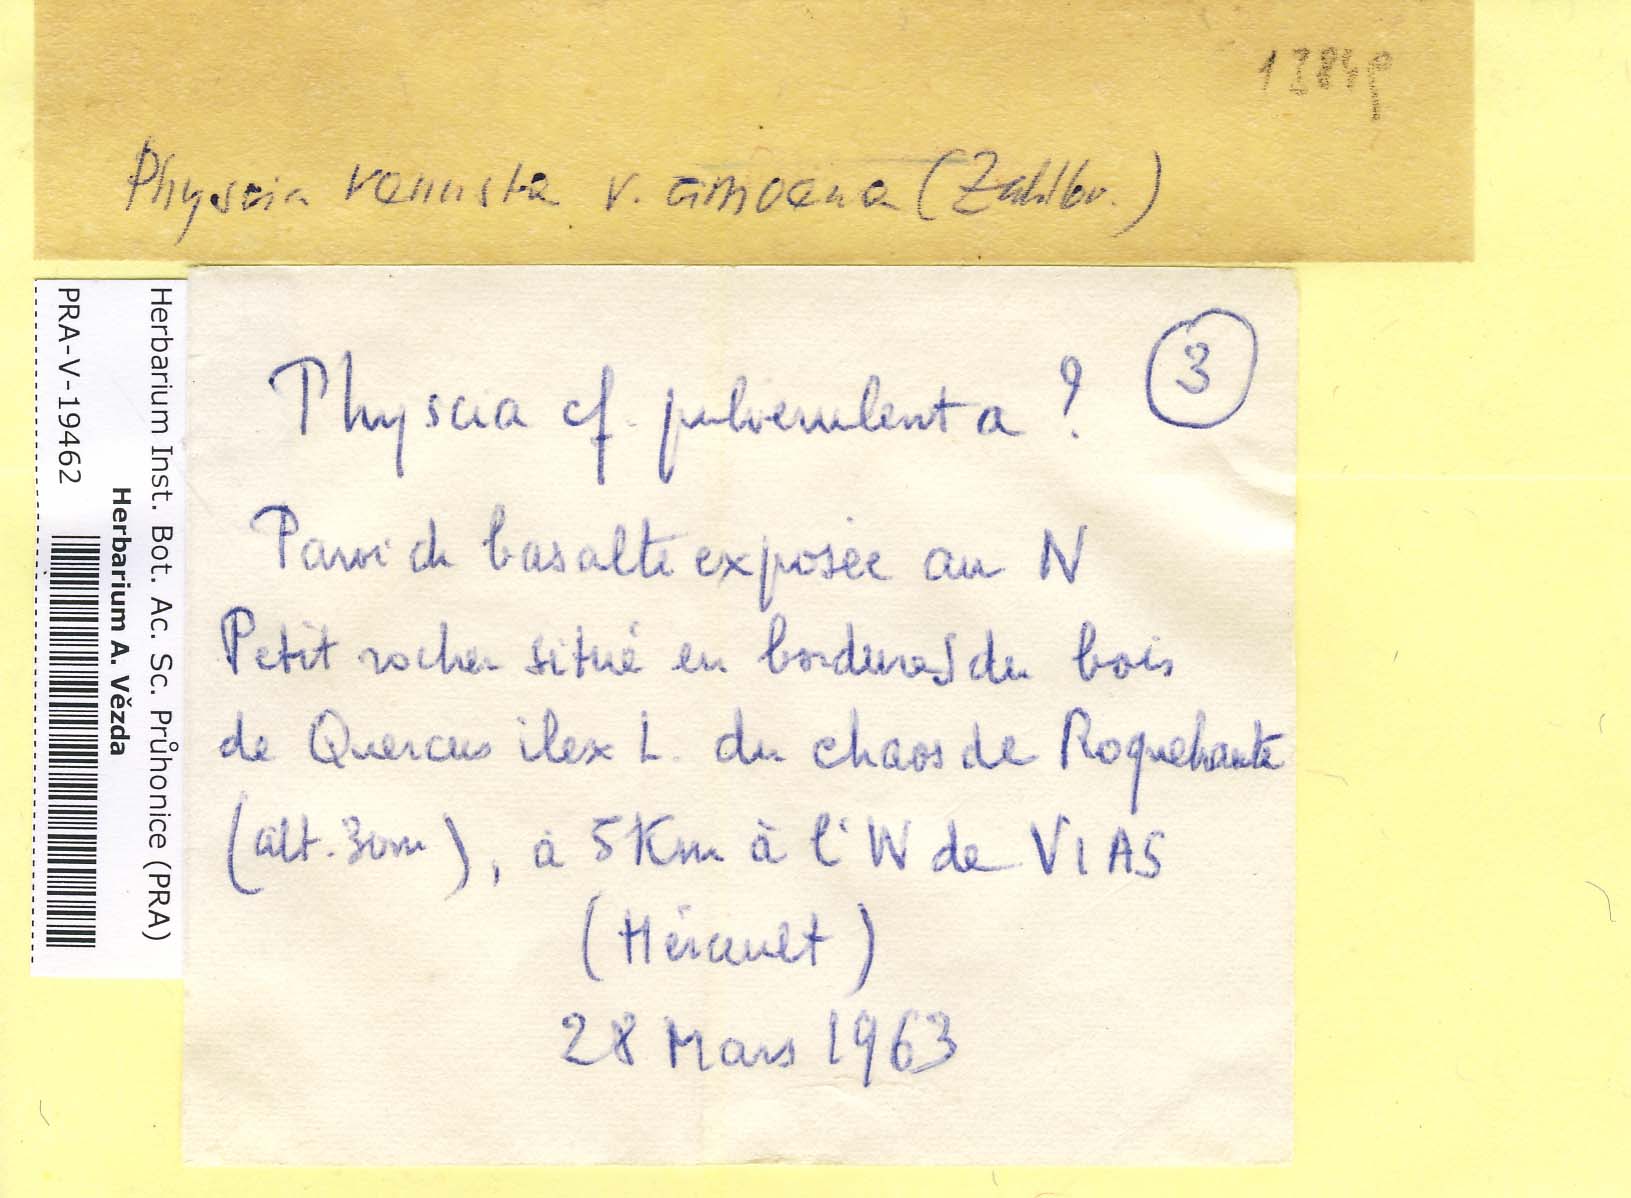 Physcia venusta v. amoena (Zahlbr.)
3
Physcia cf. pulverulenta ?
Paroi de basalte exposée au N
Petit rocher situé en bordure du bois
de Quercus ilex L. du chaos de Roquehaute
(alt. 30m), à 5 Km à l'W de VIAS
(Hérault)
28 Mars 1963
Herbarium Inst. Bot. Ac. Sc. Průhonice (PRA)
Herbarium A. Vězda
PRA-V-19462